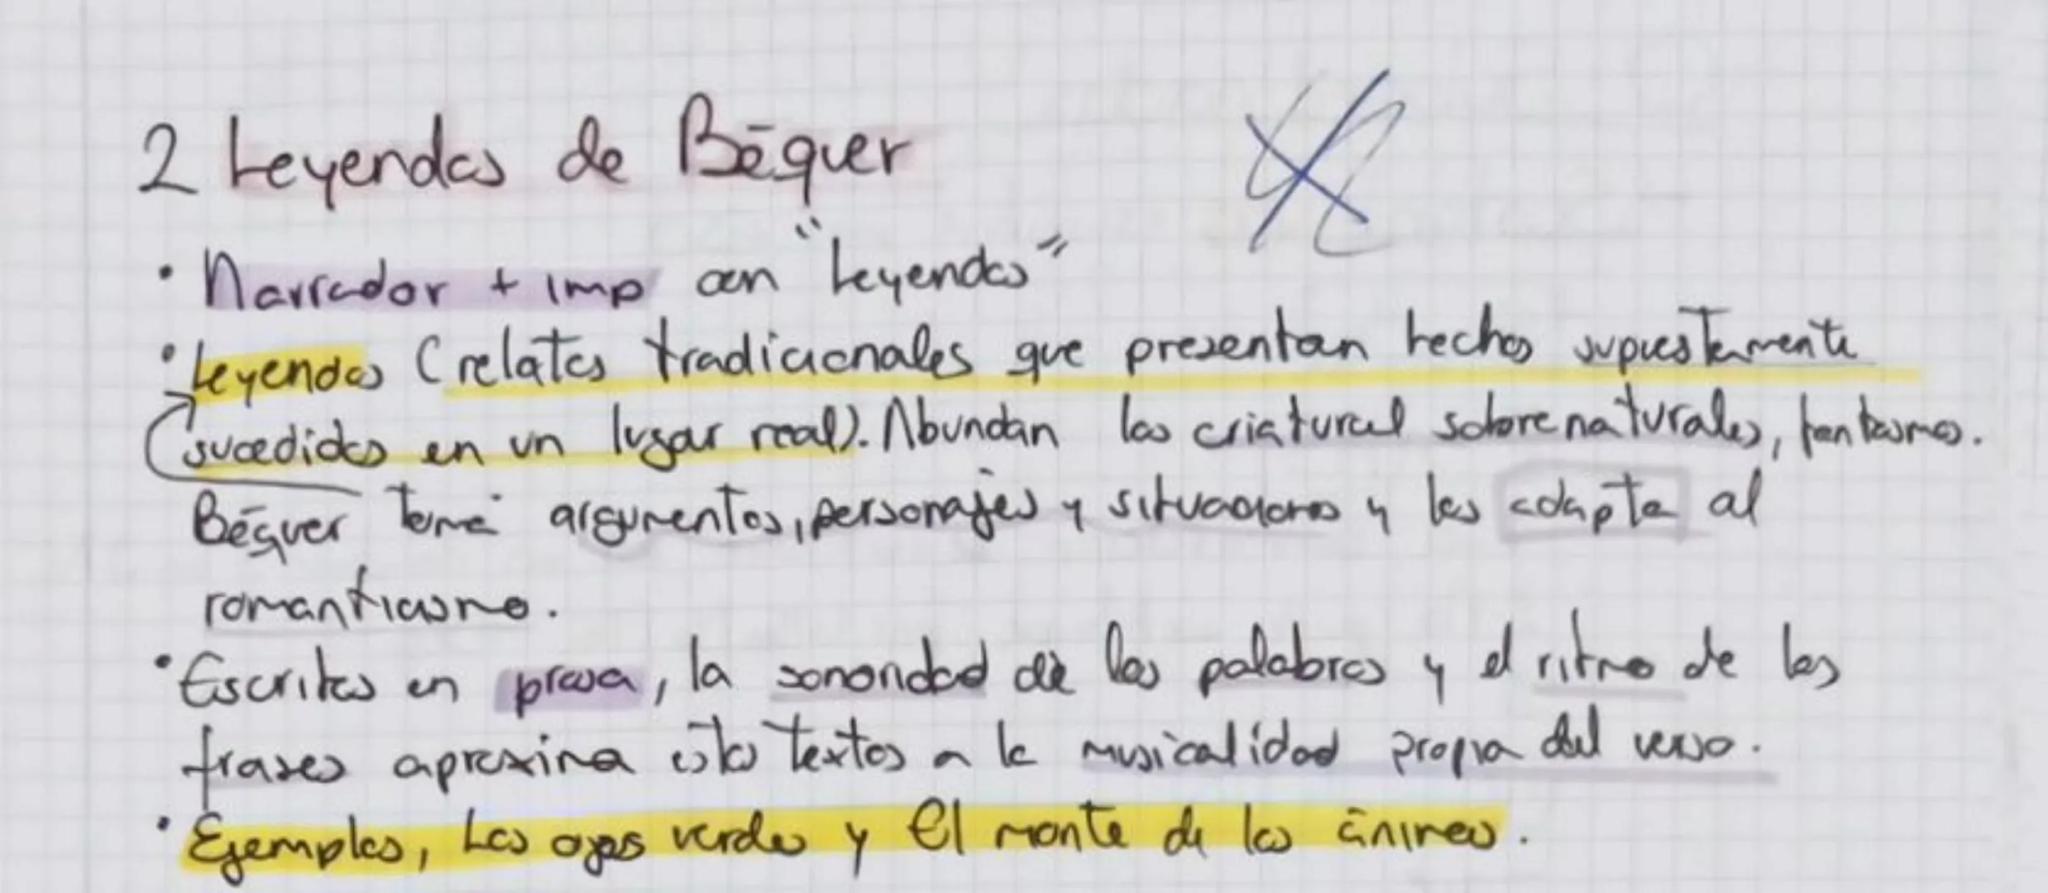 2 Leyendas de Béquer
· Narrador + imp con "Leyendas"
· Leyendas (relatos tradicionales que presentan hechos supuestamente
sucedidos en un lugar real). Abundan las criaturas sobrenaturales, fantasmas.
Béquer toma argumentos, personajes y situaciones y los adapta al
romanticismo.
· Escritas en prosa, la sonoridad de las palabras y el ritmo de las
frases aproxima estos textos a la musicalidad propia del verso.
· Ejemplos, Los ojos verdes y El monte de las ánimas.